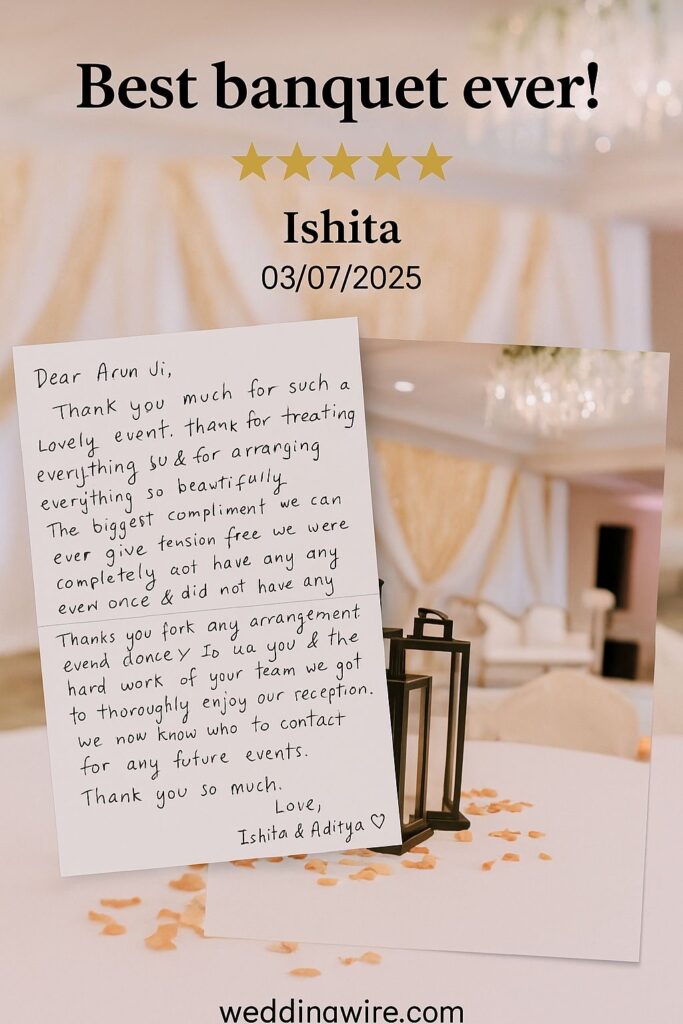 Best banquet ever!
Ishita
03/07/2025
Dear Arun Ji,
Thank you much for such a
Lovely event. thank for treating
everything su & for arranging
everything so beawtifully
The biggest compliment we can
ever give tension free we were
completely aot have any any
even once & did not have any
Thanks you fork any arrangement
evend doncey Io ua you & the
hard work of your team we got
to thoroughly enjoy our reception.
we now know who to contact
for any future events.
Thank you so much.
Love,
Ishita & Aditya ♡
weddinawire.com